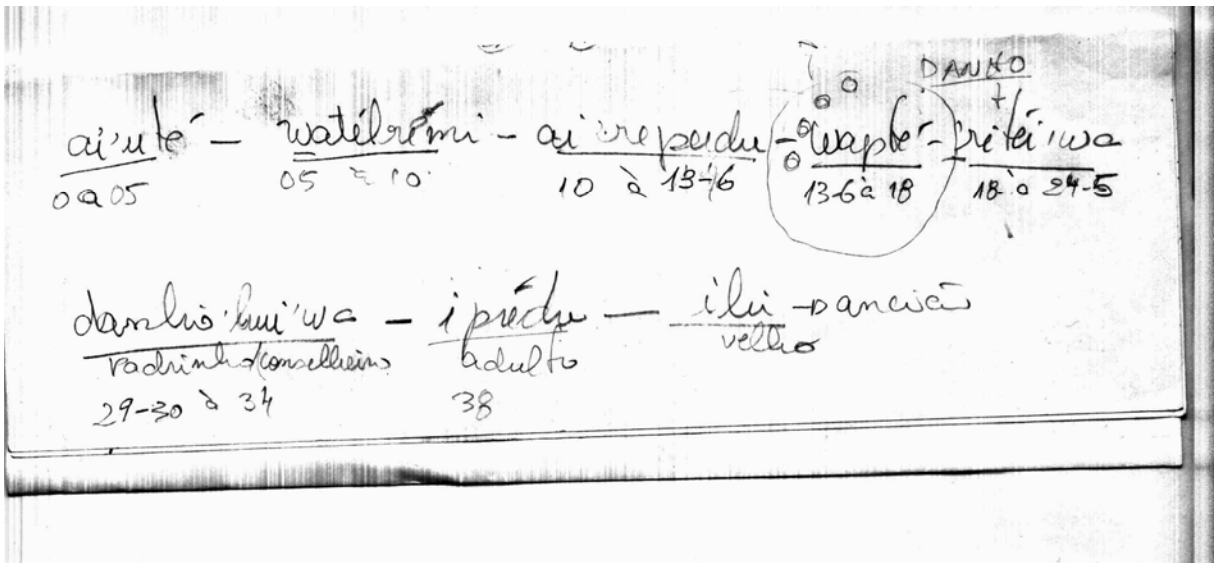 DANHO
ai'uté - watébrémi - ai'repudu - wapté - ritéi'wa
0 a 05 05 à 10 10 à 13-16 13-6 à 18 18 à 24-5
danho'hui'wa - ipredu - ihi - ancião
Padrinho/conselheiro adulto velho
29-30 à 34 38